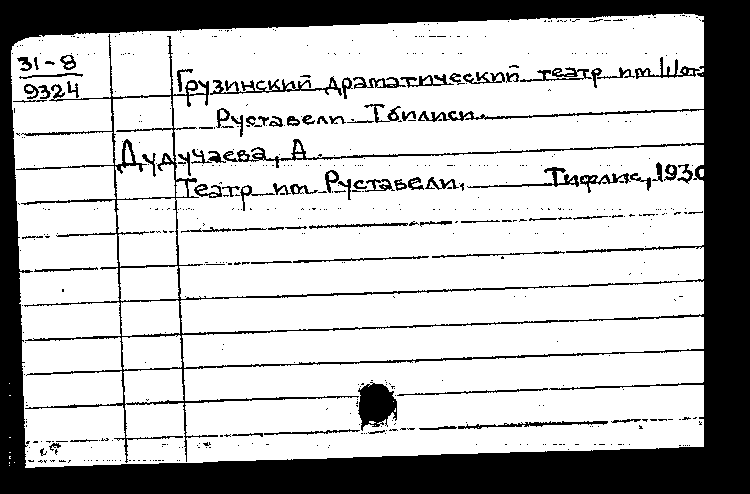 31-8
9324
Грузинский драматический театр им. Шота
Руставели. Тбилиси.
Дудучаева, А.
Театр им. Руставели. Тифлис, 1930